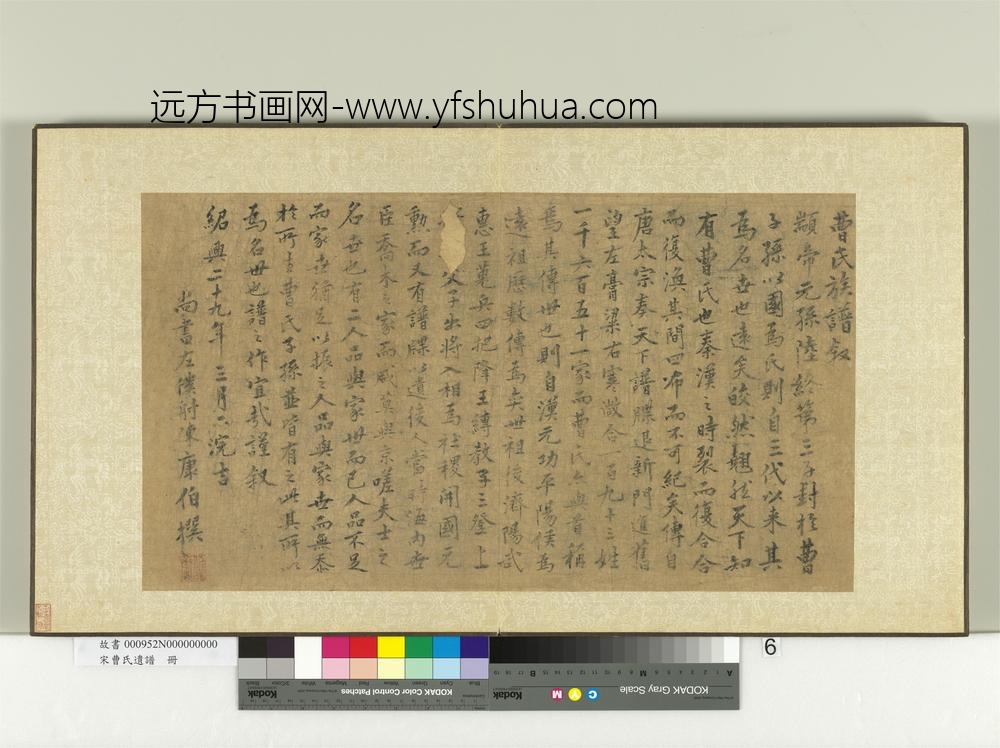 远方书画网-www.yfshuhua.com
曹氏族譜叙
顓帝元孫陸終第三子封於曹
子孫以國為氏則自三代以来其
為名世也遠矣皎然翹然天下知
有曹氏也秦漢之時裂而復合合
而復渙其間四布而不可紀矣傳自
唐太宗奉天下譜牒退新門進舊
望左膏粱右寒微合一百九十三姓
一千六百五十一家而曹氏公與首稱
焉其傳世也則自漢元功平陽侯為
遠祖歷數傳為矣世祖後濟陽武
惠王蒐兵四把降王縛教子三登上
父子出將入相為社稷開國元
勳而又有譜牒以遺後人當時海内世
臣喬木之家而咸莫與京嗟夫士之
名世也有二人品與家世而已人品不足
而家世猶足以振之人品與家世而無忝
於所書曹氏子孫並皆有之此其所以
為名世也譜之作宜哉謹叙
紹興二十九年三月六浣吉
尚書左僕射陳康伯撰
故書 000952N000000000
宋曹氏遺譜 冊
6
Kodak
KODAK Color Control Patches
Kodak
KODAK Gray Scale
C Y M